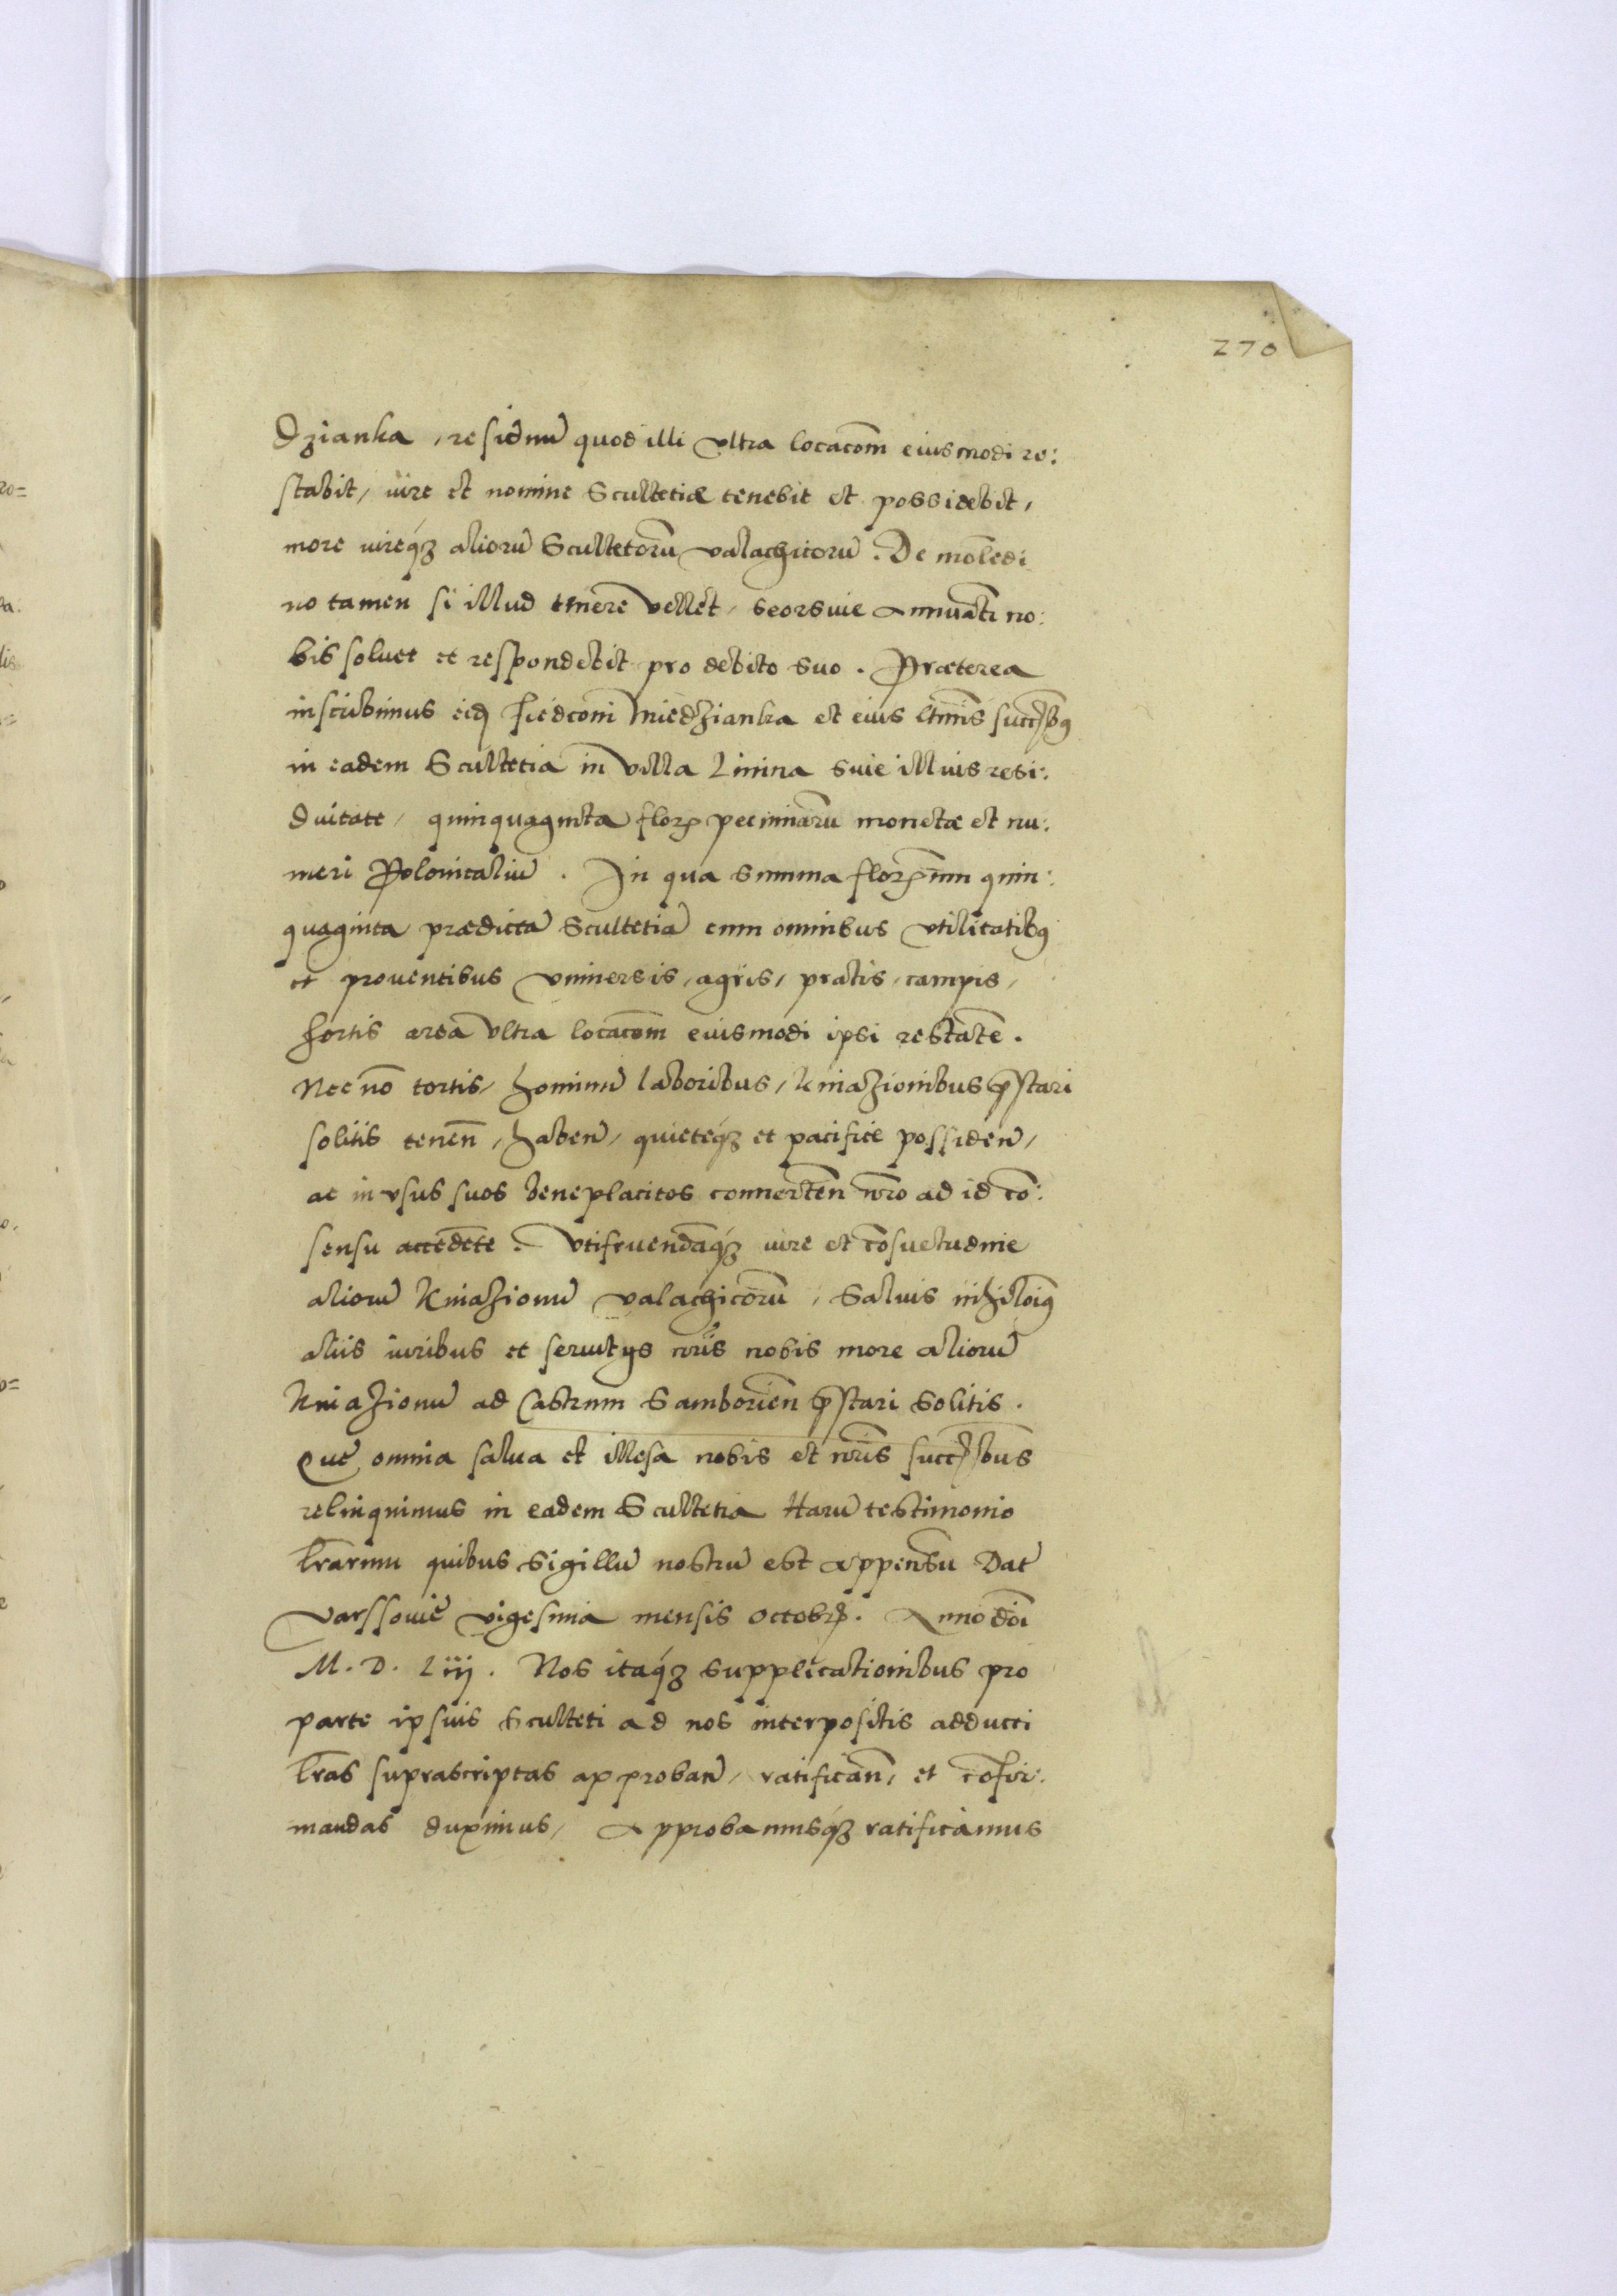 270
dzianka, residuū quod illi vltra locacōm eiusmodi re:
stabit, iure et nomine Scultetiæ tenebit et possidebit,
more iureq́ʒ aliorū Scultetorū valachicorū. De molēdi
no tamen si illud tenere vellet, seorsiue Annuati͠ no:
bis soluet et respondebit pro debito suo. Præterea
inscribimus eidʒ Fiedconi Miedzianka et eius ltimīs succʒibꝯ
in eadem Scultetia in villa Linina siue illius resi:
duitate, quinquaginta florʒ pecuniarū monetæ et nu:
meri Polonicaliū. In qua summa florʒenum quin:
quaginta prædictā Scultetiā cum omnibus vtilitatibꝯ
et prouentibus vniuersis, agris, pratis, campis,
hortis areā vltra locacōm eiusmodi ipsi restātē.
Nec nō tortis, hominū laboribus, Kniazionibus p̄stari
solitis tenen̄, haben̄, quieteq́ʒ et pacifice possiden̄,
ac in vsus suos beneplacitos conuerten̄ nr̄o ad id cō:
sensu accedēte. Vtifruendāq́ʒ iure et cōsuetudine
aliorū Kniazionū valachicorū, Saluis nihilōīꝯ
aliis iuribus et seruitijs nr̄is nobis more aliorū
Kniazionū ad Castrum Samborien̄ p̄stari solitis.
Quę omnia salua et illesa nobis et nr̄is succʒibus
relinquimus in eadem Scultetia Harū testimonio
lr̄arum quibus Sigillū nostrū est Appensū Dat̄
Varssouię vigesima mensis octobrʒ. Anno dōi
M. D. Liij. Nos itaq́ʒ supplicationibus pro
parte ipsius Sculteti ad nos interpositis adducti
lr̄as suprascriptas approban̄, ratifican̄, et cōfir:
mandas duximus, Approbamusq́ʒ ratificamus